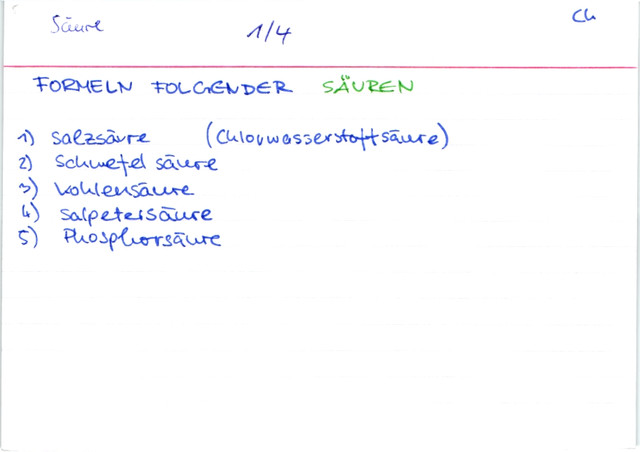 Säure 1/4 Ch
FORMELN FOLGENDER SÄUREN
1) Salzsäure (Chlorwasserstoffsäure)
2) Schwefelsäure
3) Kohlensäure
4) Salpetersäure
5) Phosphorsäure